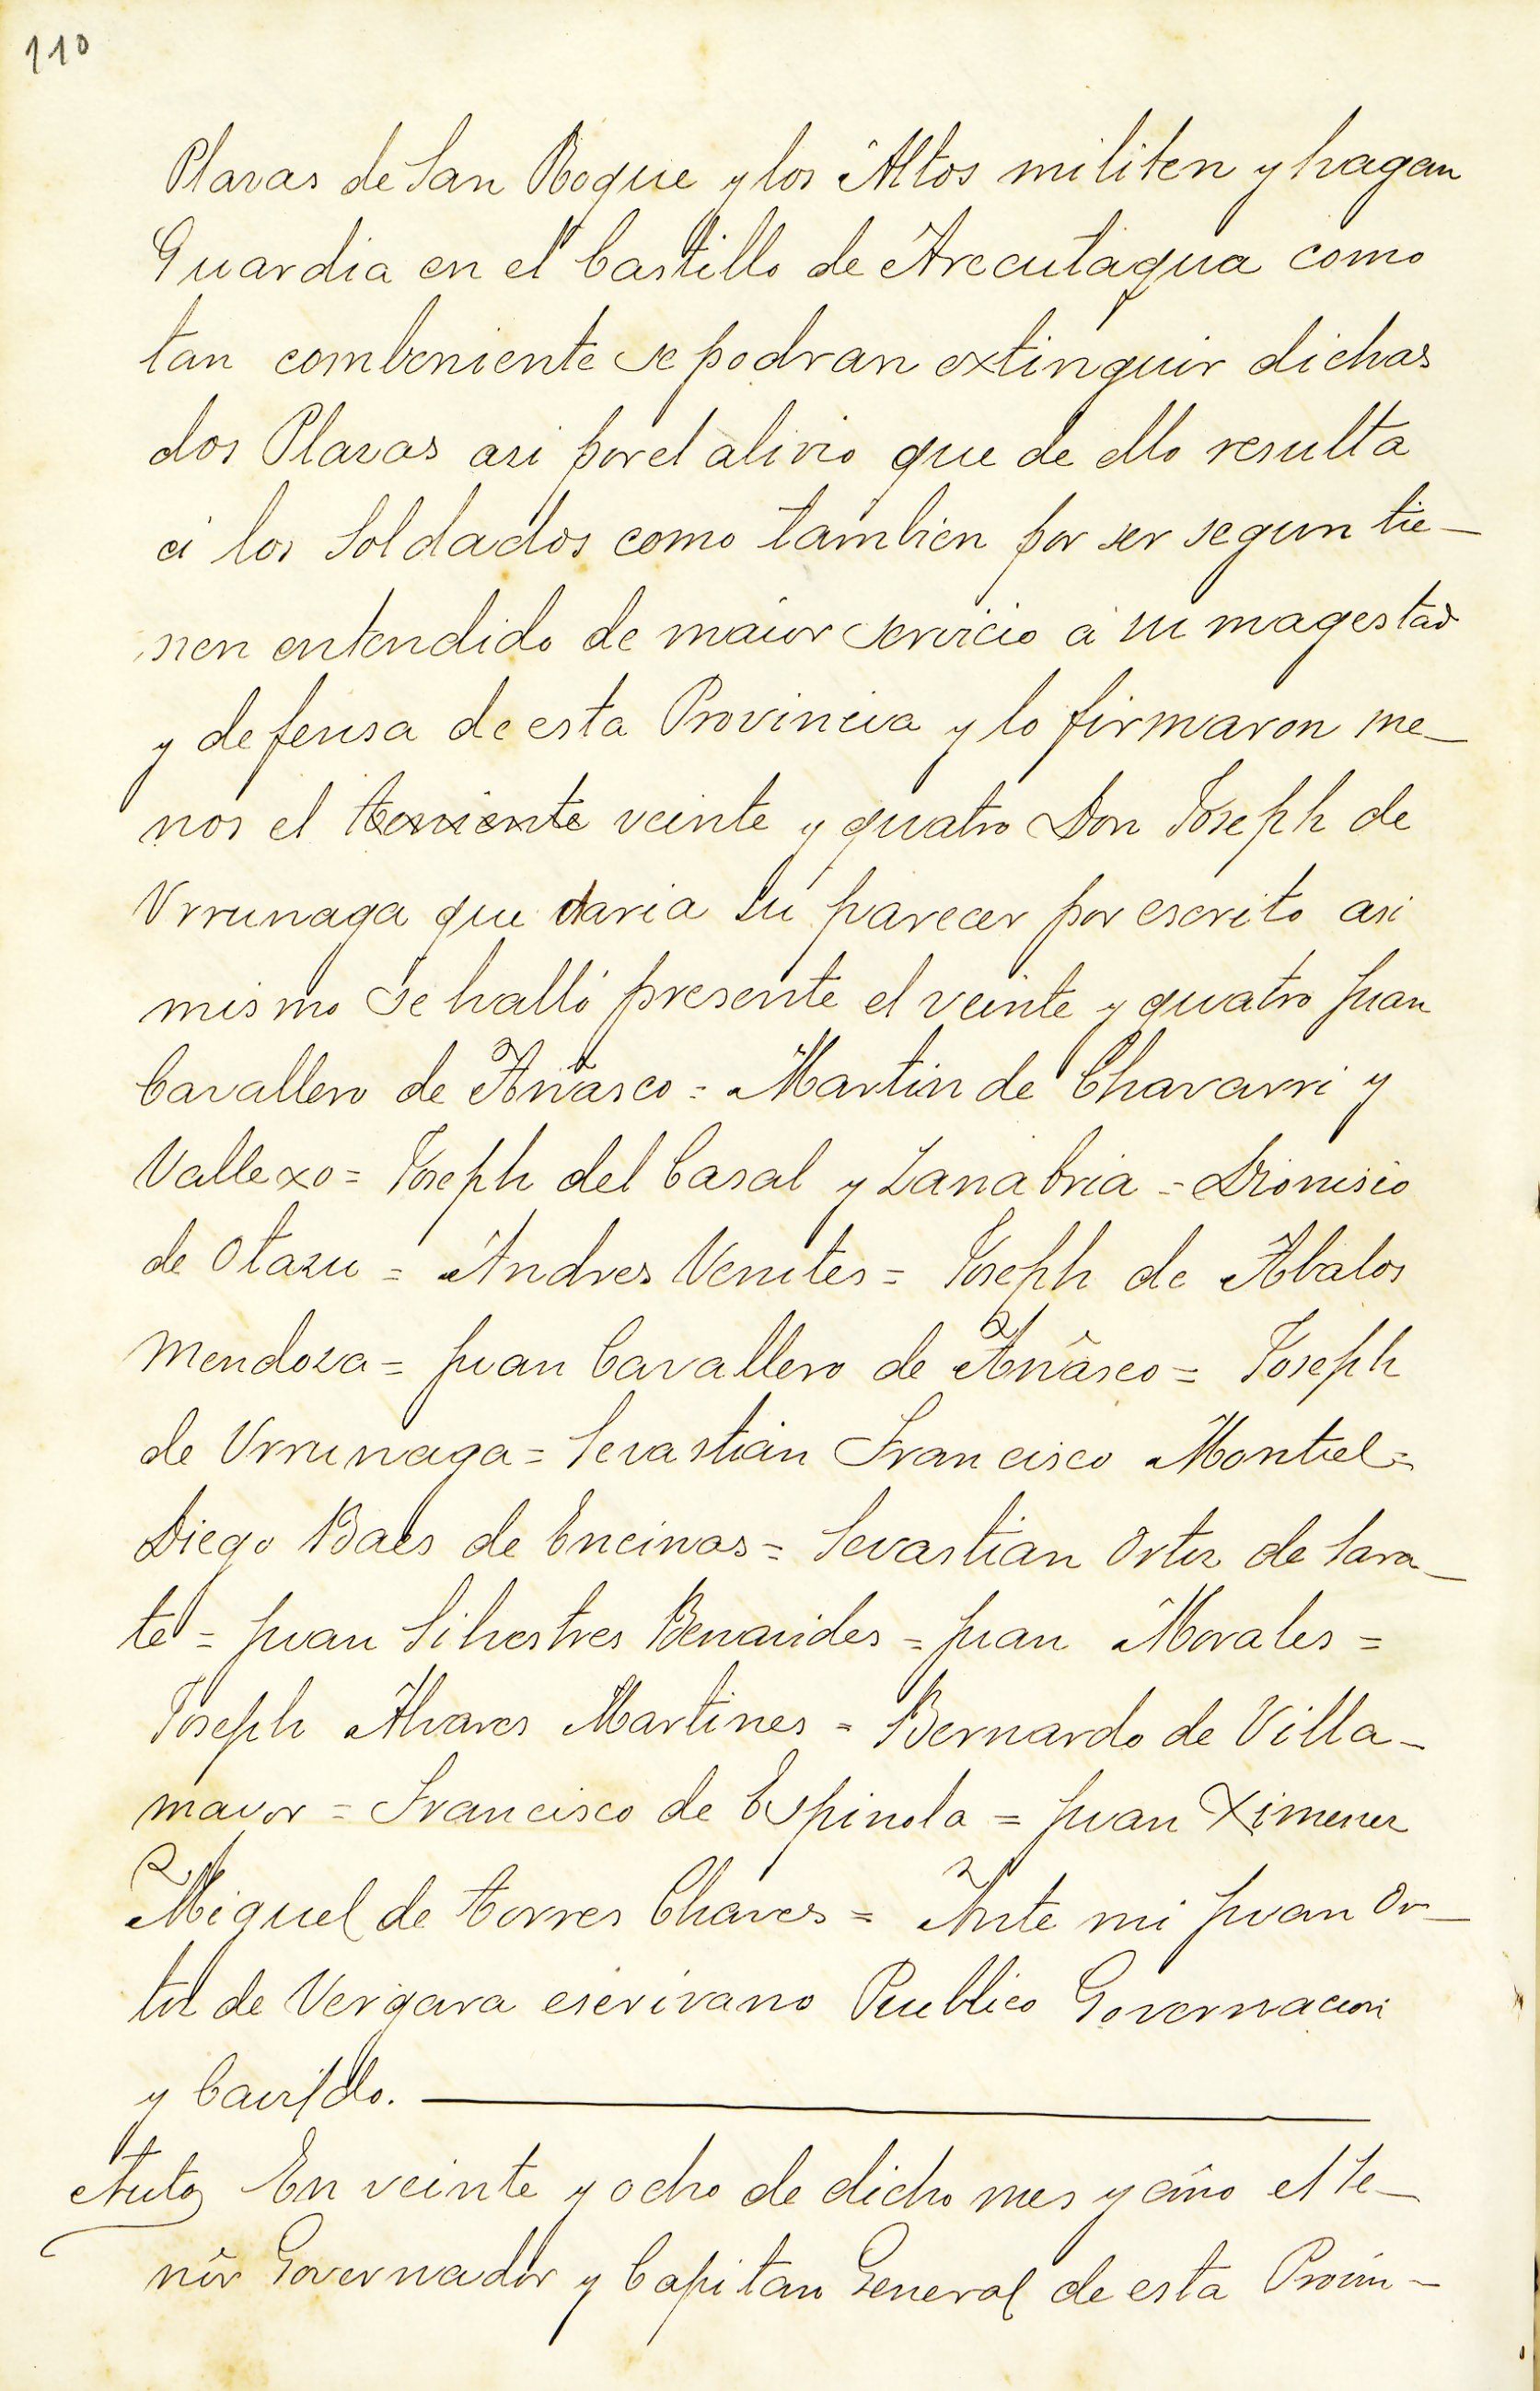 110
Plazas de San Roque y los Altos militen y hagan
Guardia en el Castillo de Arecutagua como
tan combeniente se podran extinguir dichas
dos Plazas asi por el alivio que de ello resulta
á los Soldados como tambien por ser segun tie-
nen entendido de maior servicio á su magestad
y defensa de esta Provincia y lo firmaron me-
nos el teniente veinte y quatro Don Joseph de
Vrrunaga que daria su parecer por escrito asi
mismo se halló presente el veinte y quatro Juan
Cavallero de Añasco = Martin de Chavarri y
Vallexo = Joseph del Casal y Zanabria = Dionisio
de Otazu = Andres Venites = Joseph de Abalos
Mendoza = Juan Cavallero de Añasco = Joseph
de Vrrunaga = Sevastian Francisco Montiel =
Diego Baes de Encinas = Sevastian Ortiz de Sara-
te = Juan Silvestres Benavides = Juan Morales =
Joseph Alvares Martines = Bernardo de Villa-
mayor = Francisco de Espinola = Juan Ximenez
Miguel de torres Chaves = Ante mi Juan Or-
tiz de Vergara escrivano Publico Governacion
y Cavildo.
Auto En veinte y ocho de dicho mes y año el Se-
ñor Governador y Capitan General de esta Provin-